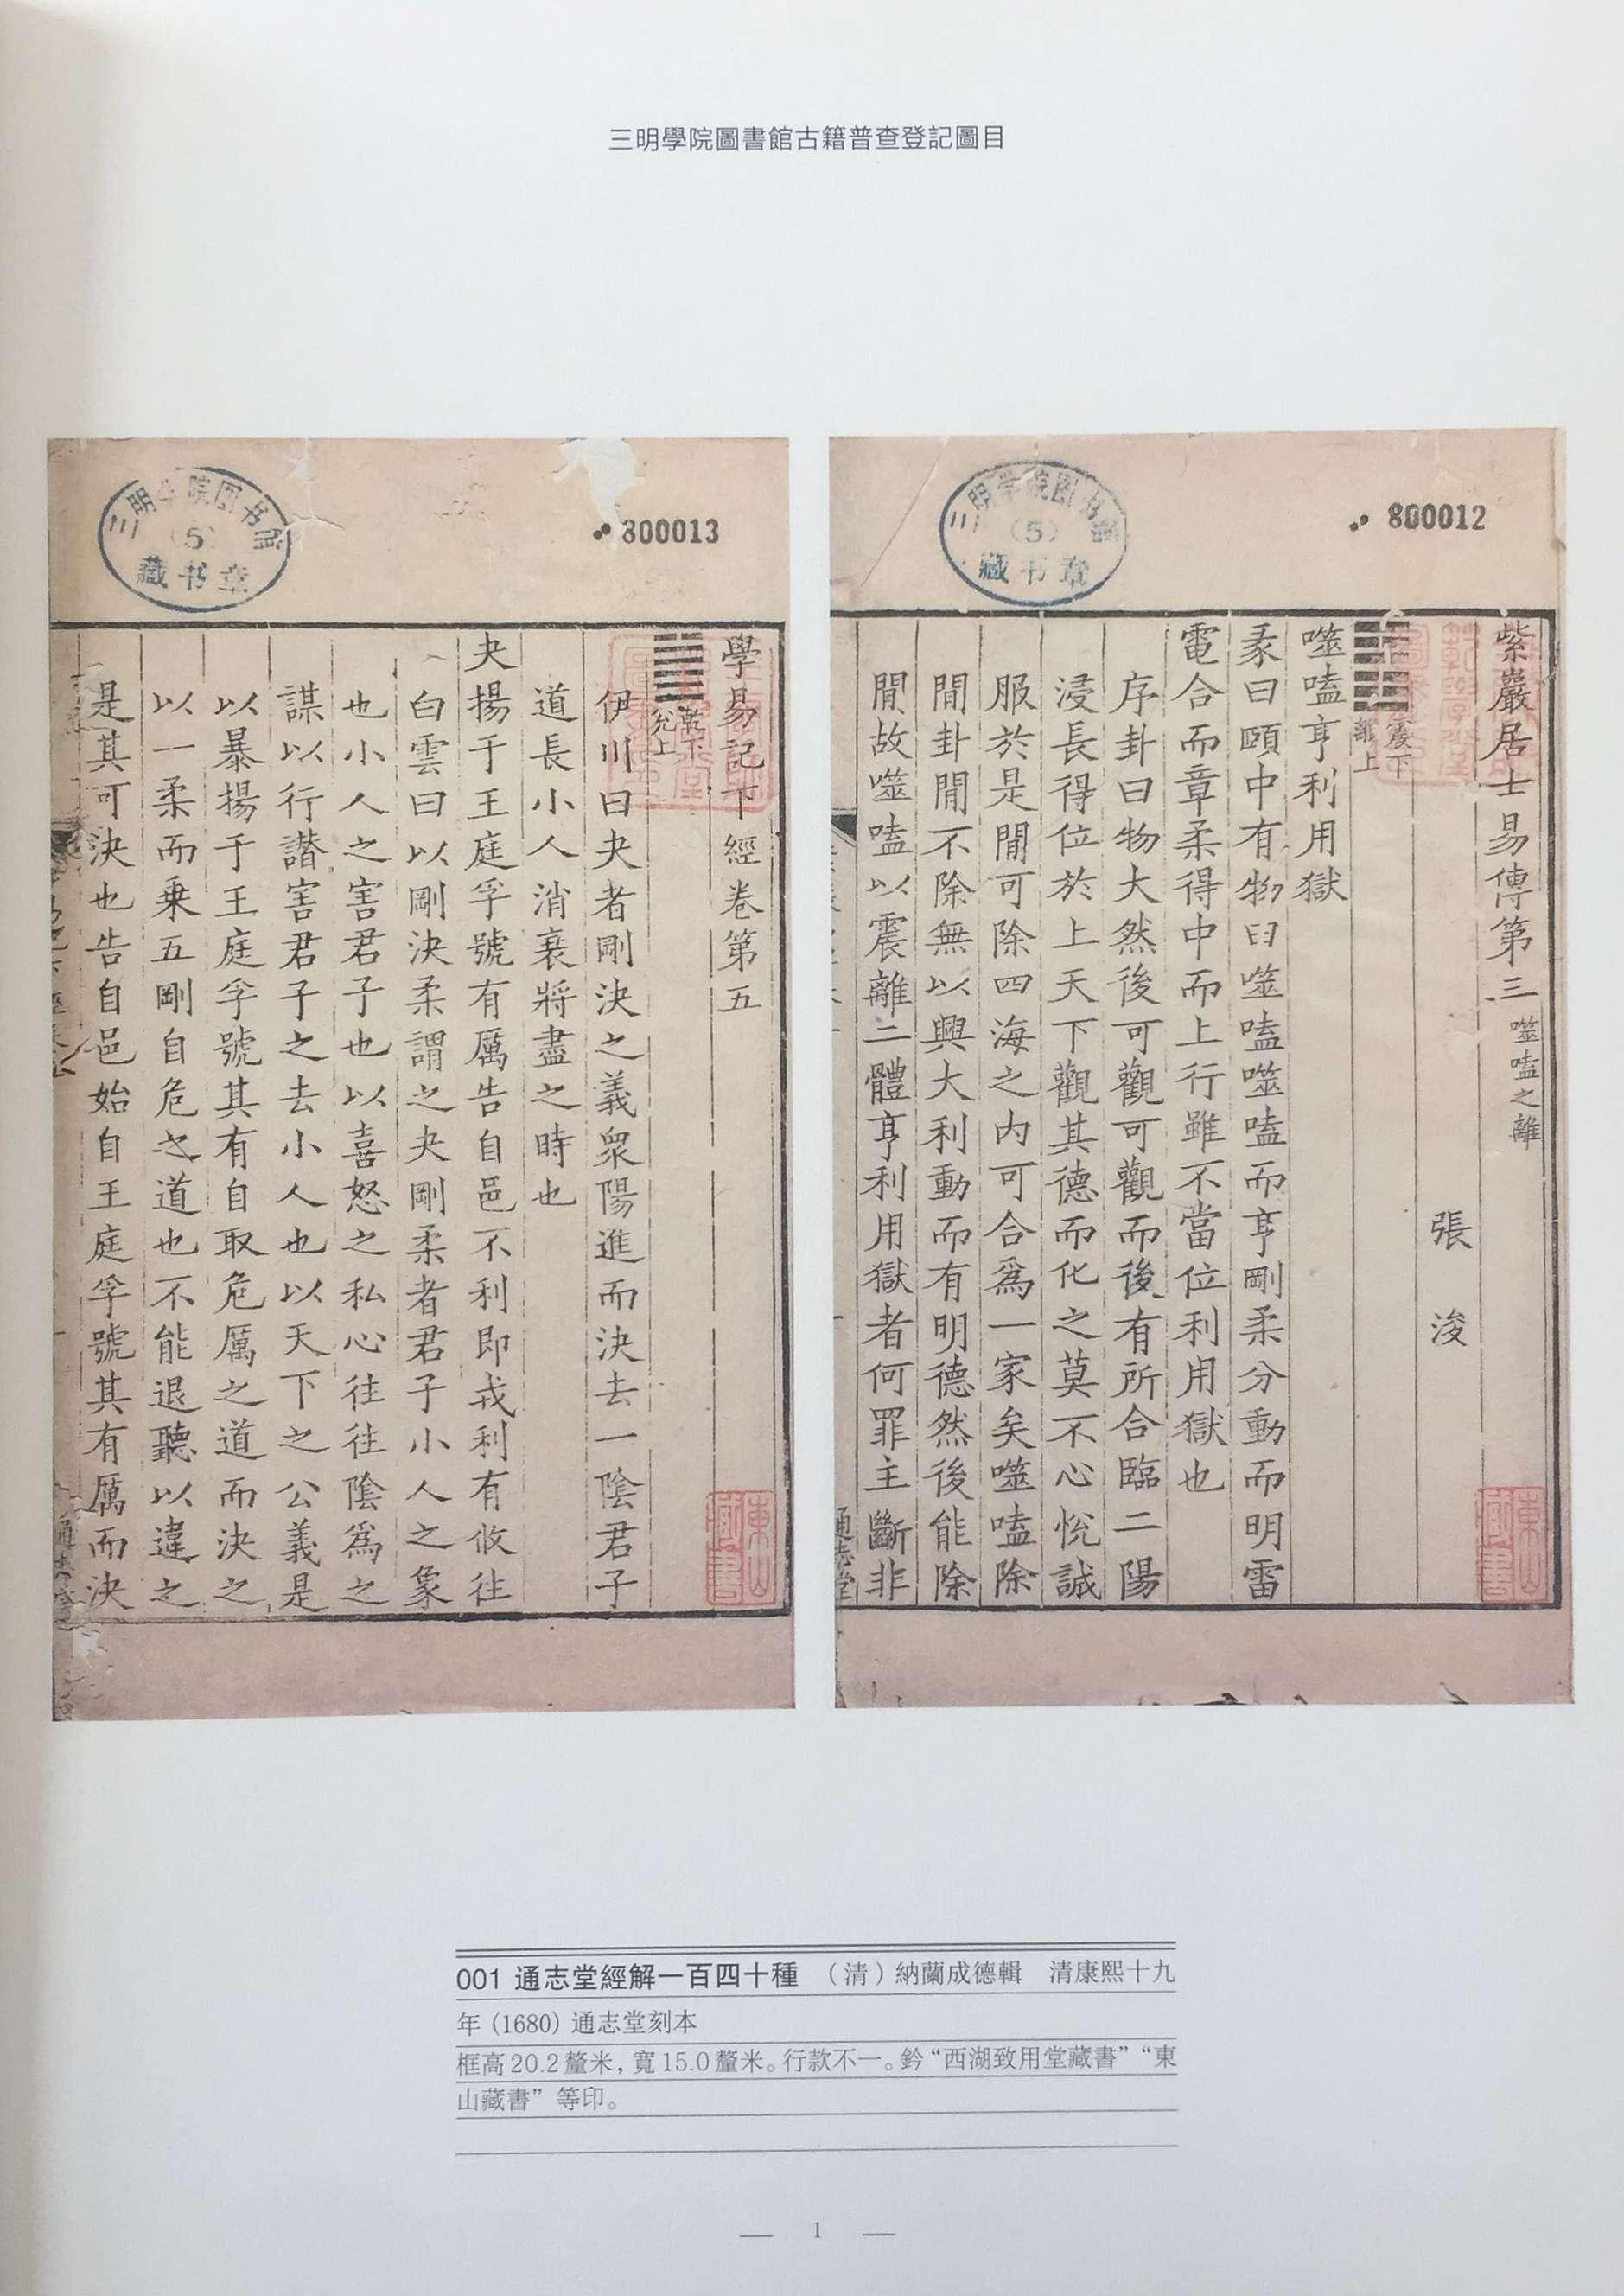 三明學院圖書館古籍普查登記圖目
三明学院图书馆
(5)
藏书章
800012
紫巖居士易傳第三 噬嗑之離
張浚
震下
離上
噬嗑亨利用獄
彖曰頤中有物曰噬嗑噬嗑而亨剛柔分動而明雷
電合而章柔得中而上行雖不當位利用獄也
序卦曰物大然後可觀可觀而後有所合臨二陽
浸長得位於上天下觀其德而化之莫不心悅誠
服於是閒可除四海之内可合爲一家矣噬嗑除
閒卦閒不除無以興大利動而有明德然後能除
閒故噬嗑以震離二體亨利用獄者何罪主斷非
通志堂
東山
藏書
三明学院图书馆
(5)
藏书章
800013
學易記下經卷第五
乾下
兌上
伊川曰夬者剛決之義衆陽進而決去一陰君子
道長小人消衰將盡之時也
夬揚于王庭孚號有厲告自邑不利即戎利有攸往
白雲曰以剛決柔謂之夬剛柔者君子小人之象
也小人之害君子也以喜怒之私心往往陰爲之
謀以行譖害君子之去小人也以天下之公義是
以暴揚于王庭孚號其有自取危厲之道而決之
以一柔而乗五剛自危之道也不能退聽以違之
是其可決也告自邑始自王庭孚號其有厲而決
東山
藏書
001 通志堂經解一百四十種 （清）納蘭成德輯 清康熙十九
年(1680)通志堂刻本
框高20.2釐米，寬15.0釐米。行款不一。鈐“西湖致用堂藏書”“東
山藏書”等印。
— 1 —